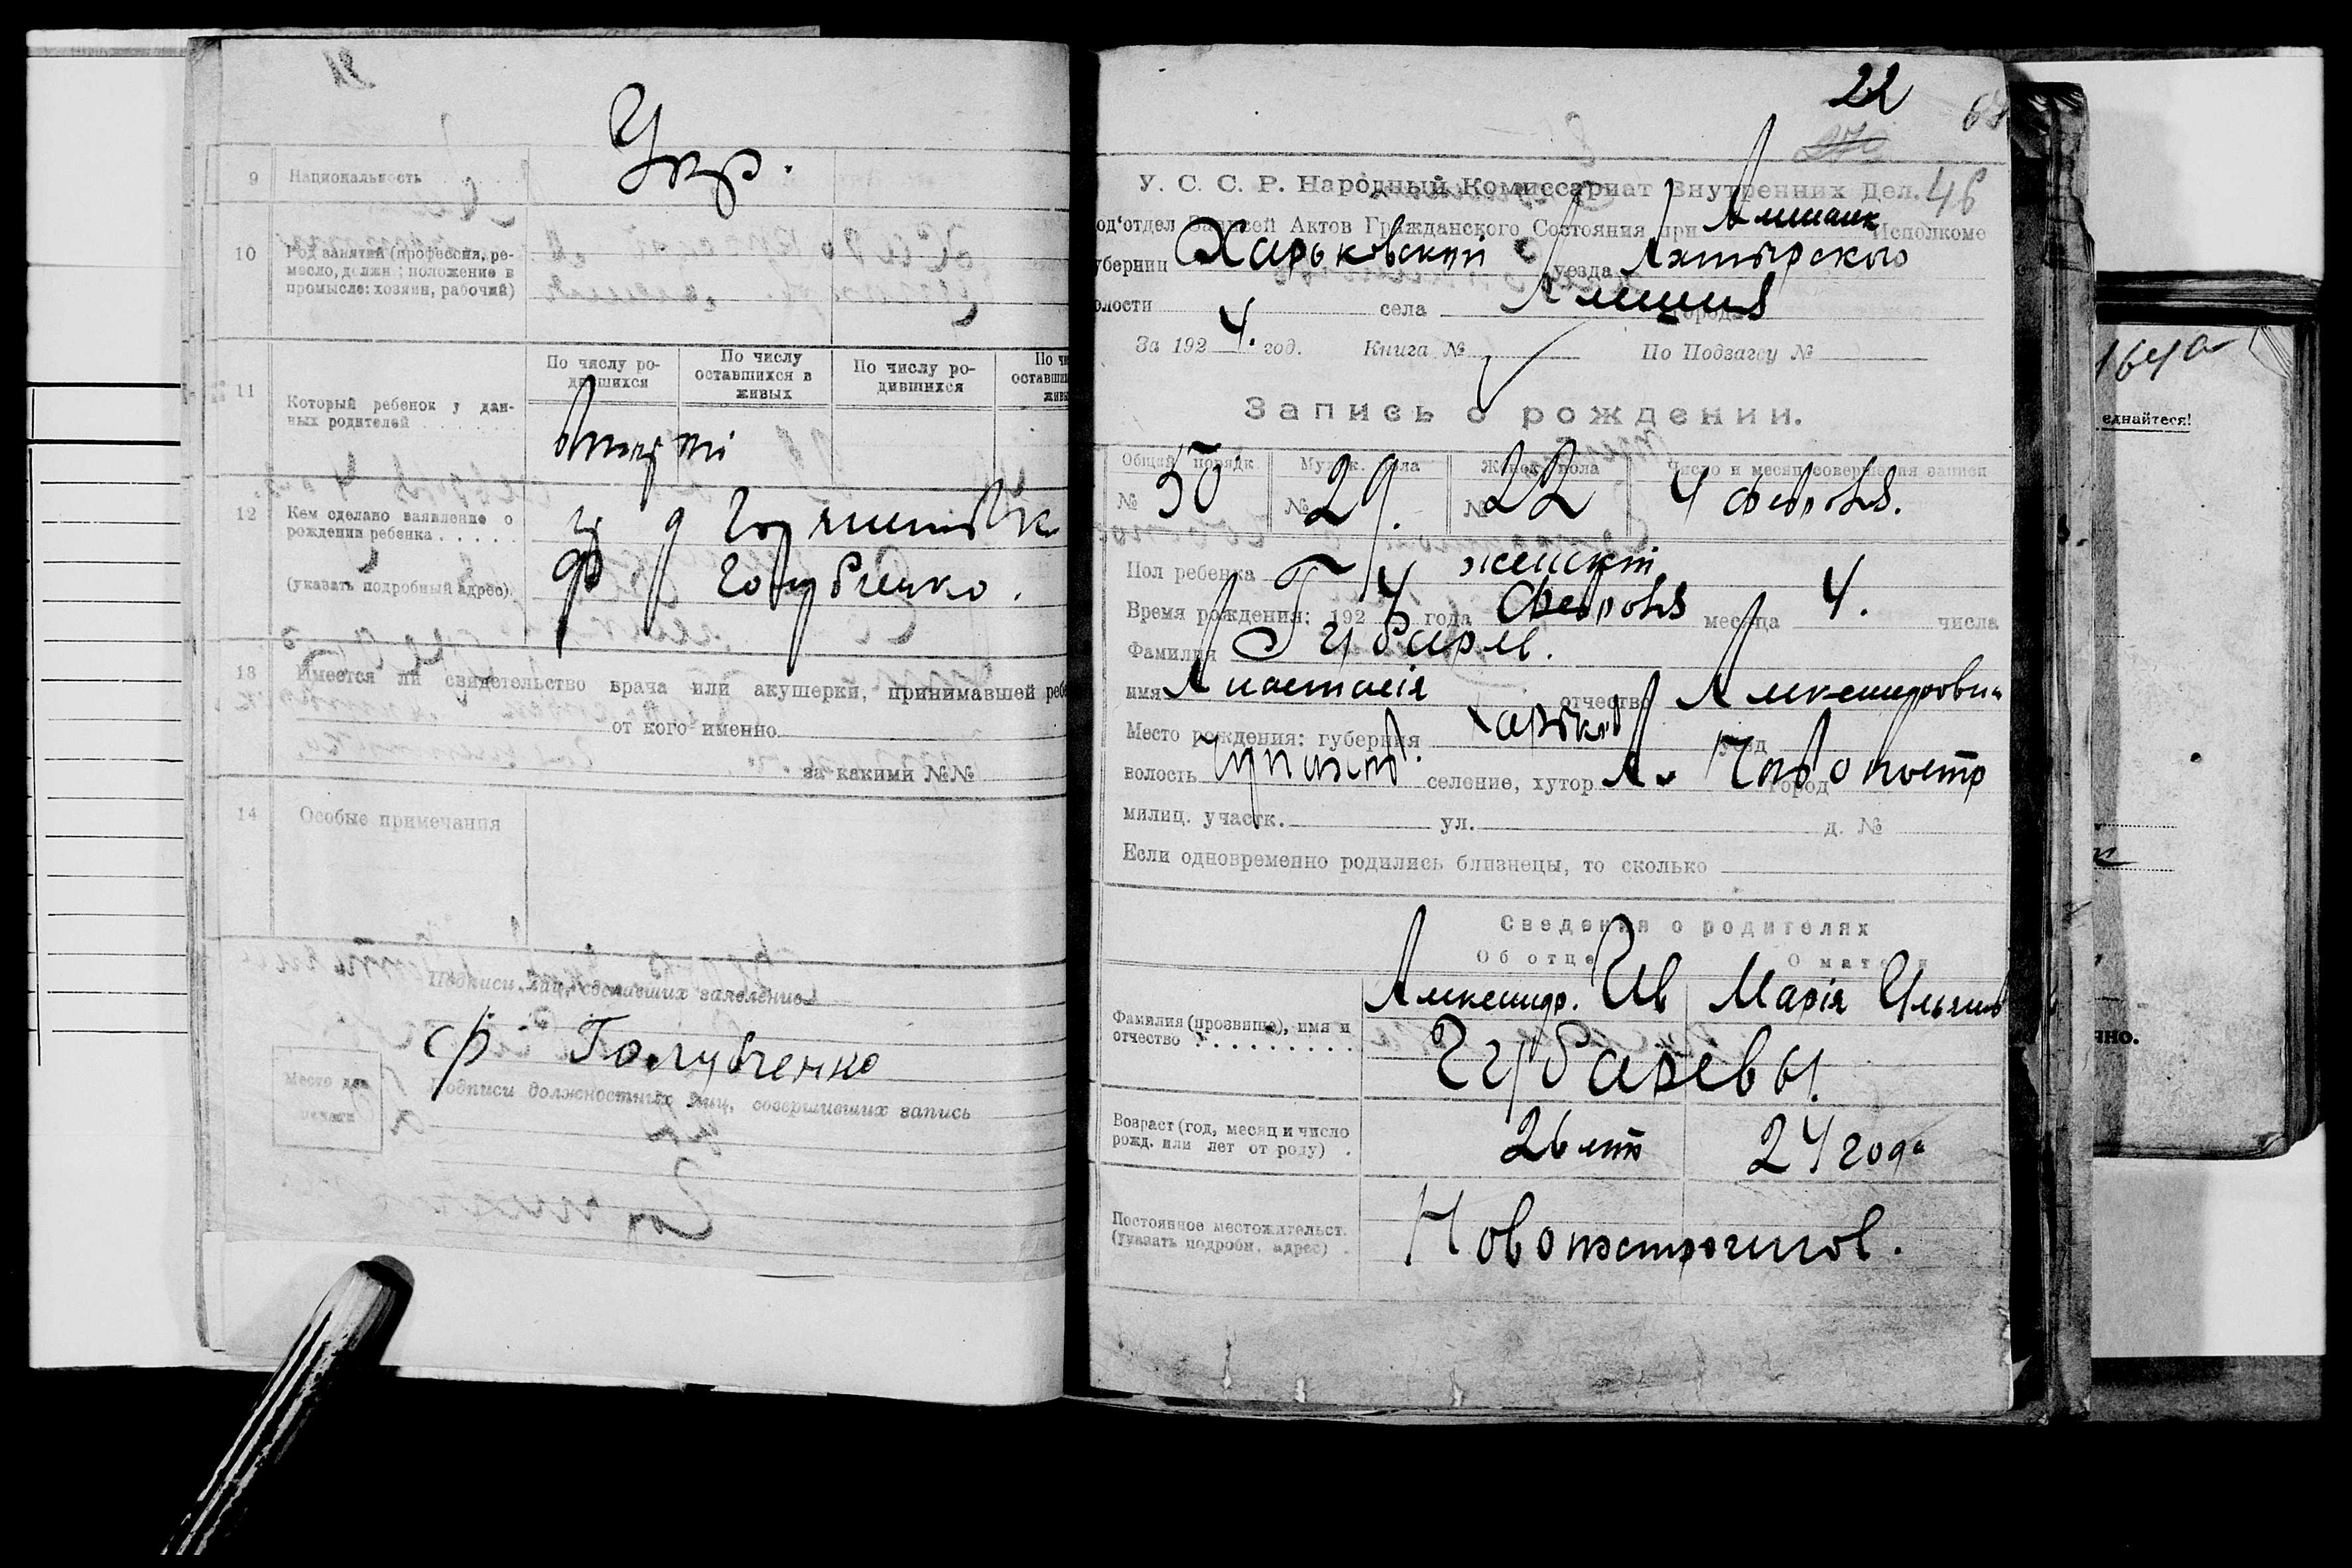 Укр.
9 Национальность
10 Род занятий (профессия, ре-
месло, должн.; положение в
промысле: хозяин, рабочий)
По числу ро-
дившихся
По числу
оставшихся в
живых
По числу ро-
дившихся
По чи
оставши
живы
11 Который ребенок у дан-
ных родителей
12 Кем сделано заявление о
рождении ребенка
(указать подробный адрес).
Голубченко.
13 Имеется ли свидетельство врача или акушерки, принимавшей ребе
от кого именно
за какими №№
14 Особые примечания
Подписи лиц, сделавших заявление
Ф Голубченко
Место для
печати
Подписи должностных лиц, совершивших запись
22
46
У. С. С. Р. Народный Комиссариат Внутренних Дел.
од'отдел Записей Актов Гражданского Состояния при Исполкоме
уберния Харьковской уезда Ахтырского
олости села города
За 1924. год. Книга № По Подзагсу №
Запись о рождении.
Общий порядк. Мужск. пола Женск. пола Число и месяц совершения записи
№ 50 № 29. № 22 4 февраля.
Пол ребенка женский
Время рождения: 1924 года февраля месяца 4. числа
Фамилия Губарев.
имя Анастасія отчество Александровн
Место рождения: губерния Харьков уезд
волость селение, хутор город
милиц. участк. ул. д. №
Если одновременно родились близнецы, то сколько
Сведения о родителях
Об отце О матери
Фамилия (прозвище), имя и
отчество
Александр. Ив Марія Ильин
Губаревы.
Возраст (год, месяц и число
рожд. или лет от роду)
26 лет 24 года
Постоянное местожительст.
(указать подробн. адрес)
164а
еднайтеся!